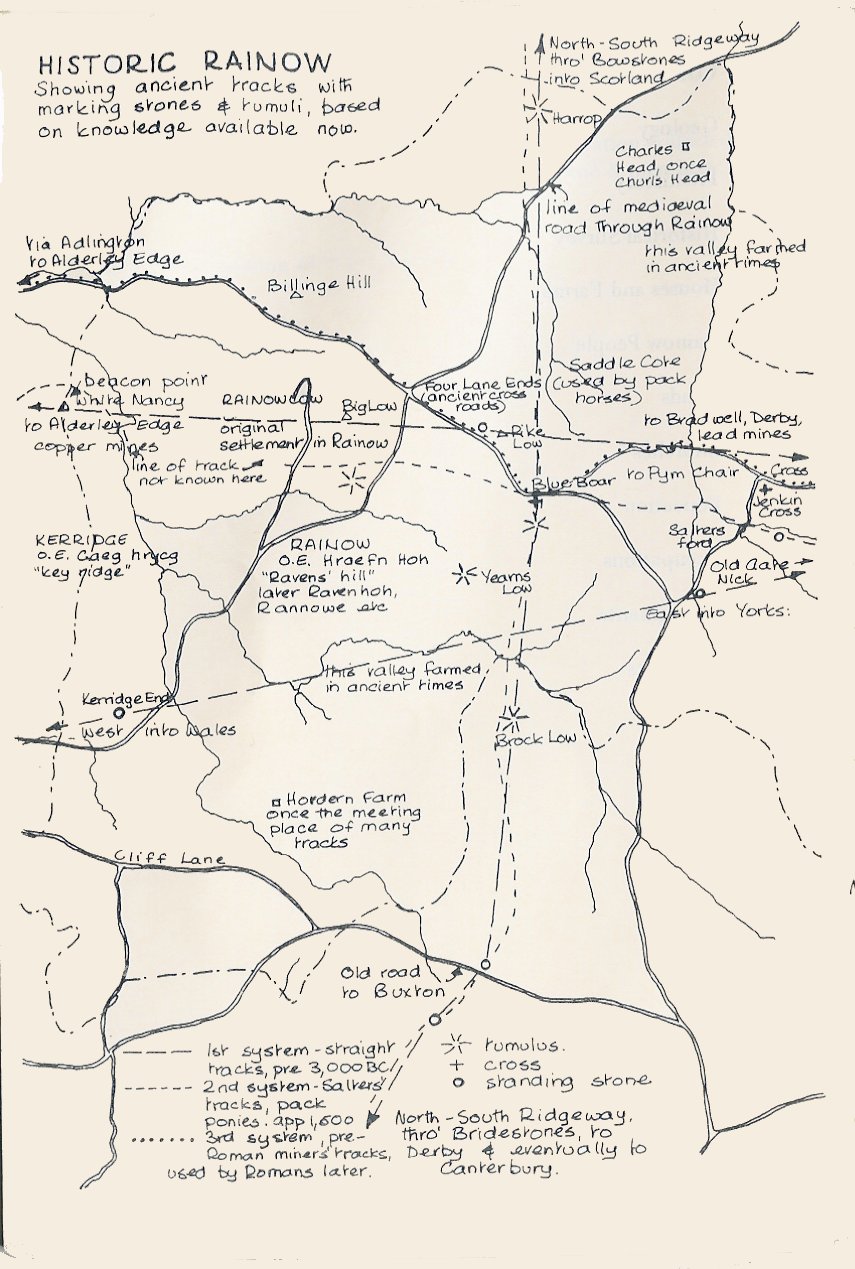 HISTORIC RAINOW
Showing ancient tracks with
marking stones & tumuli, based
on knowledge available now.
North-South Ridgeway
thro' Bowstones
into Scotland
Harrop
Charles
Head, once
Churls Head
line of mediaeval
road through Rainow
this valley farmed
in ancient times
Via Adlington
to Alderley Edge
Billinge Hill
Saddle Cote
(used by pack
horses)
Four Lane Ends
(ancient cross
roads)
beacon point
White Nancy
to Alderley Edge
copper mines
RAINOWLOW
original
settlement in Rainow
Big Low
Pike
Low
to Bradwell, Derby,
lead mines
line of track
not known here
Blue Boar
to Pym Chair
Cross
Jenkin
Cross
Salters
ford
KERRIDGE
O.E. Caeg hrycg
"key ridge"
RAINOW
O.E. Hraefn Hoh
"Ravens' hill"
later Ravenhoh,
Rannowe etc
Yearns
Low
Old Gate
Nick
East into Yorks:
this valley farmed
in ancient times
Kerridge End
West into Wales
Brock Low
Hordern Farm
once the meeting
place of many
tracks
Cliff Lane
Old road
to Buxton
1st system - straight
tracks, pre 3,000 BC
2nd system - Salters'
tracks, pack
ponies. app 1,500
3rd system, pre-
Roman miners' tracks,
used by Romans later.
tumulus.
cross
standing stone
North-South Ridgeway,
thro' Bridestones, to
Derby & eventually to
Canterbury.